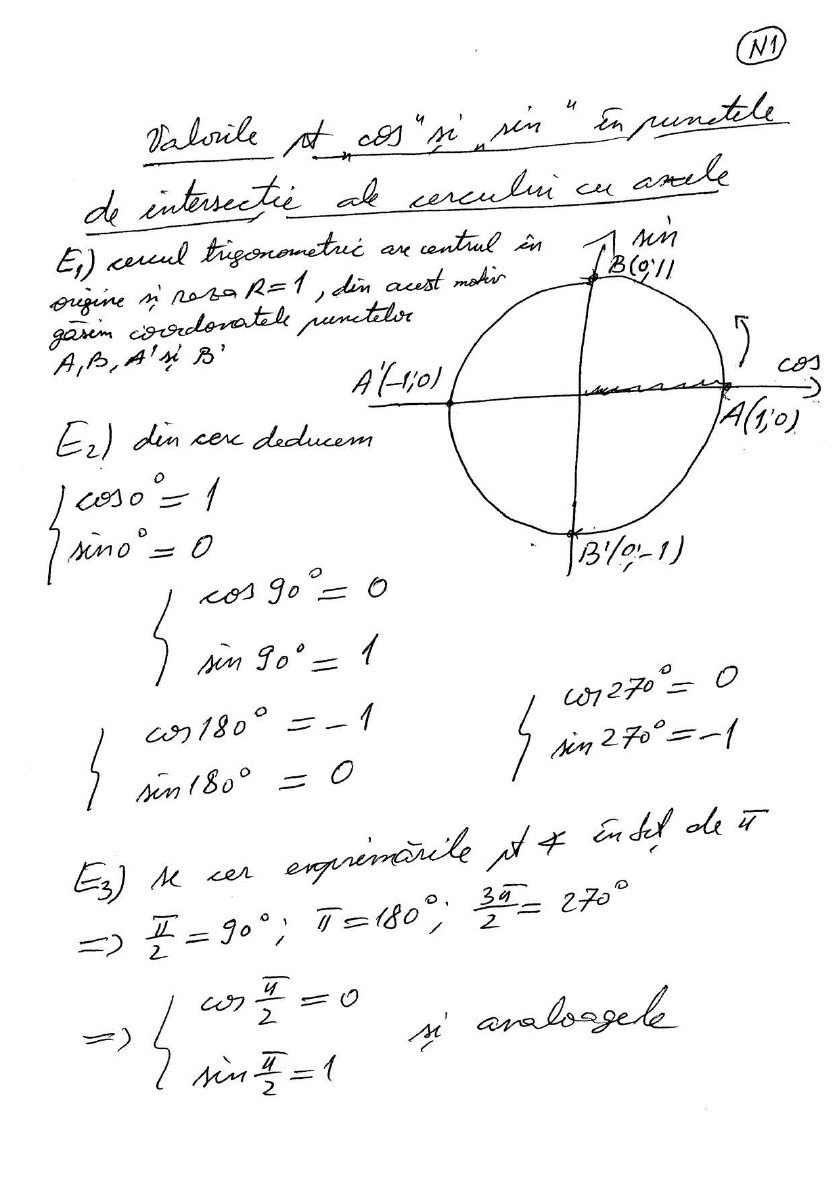 N1
Valorile pt „cos" și „sin" în punctele
de intersecție ale cercului cu axele
E₁) cercul trigonometric are centrul în
origine și raza R=1, din acest motiv
găsim coordonatele punctelor
A, B, A' și B'
sin
B(0;1)
cos
A'(-1;0)
A(1;0)
B'(0;-1)
E₂) din cerc deducem
{ cos 0° = 1
sin 0° = 0
{ cos 90° = 0
sin 90° = 1
{ cos 180° = -1
sin 180° = 0
{ cos 270° = 0
sin 270° = -1
E₃) se cer exprimările pt ∢ în fcț de π
=> π/2 = 90°; π = 180°; 3π/2 = 270°
=> { cos π/2 = 0
sin π/2 = 1
și analoagele